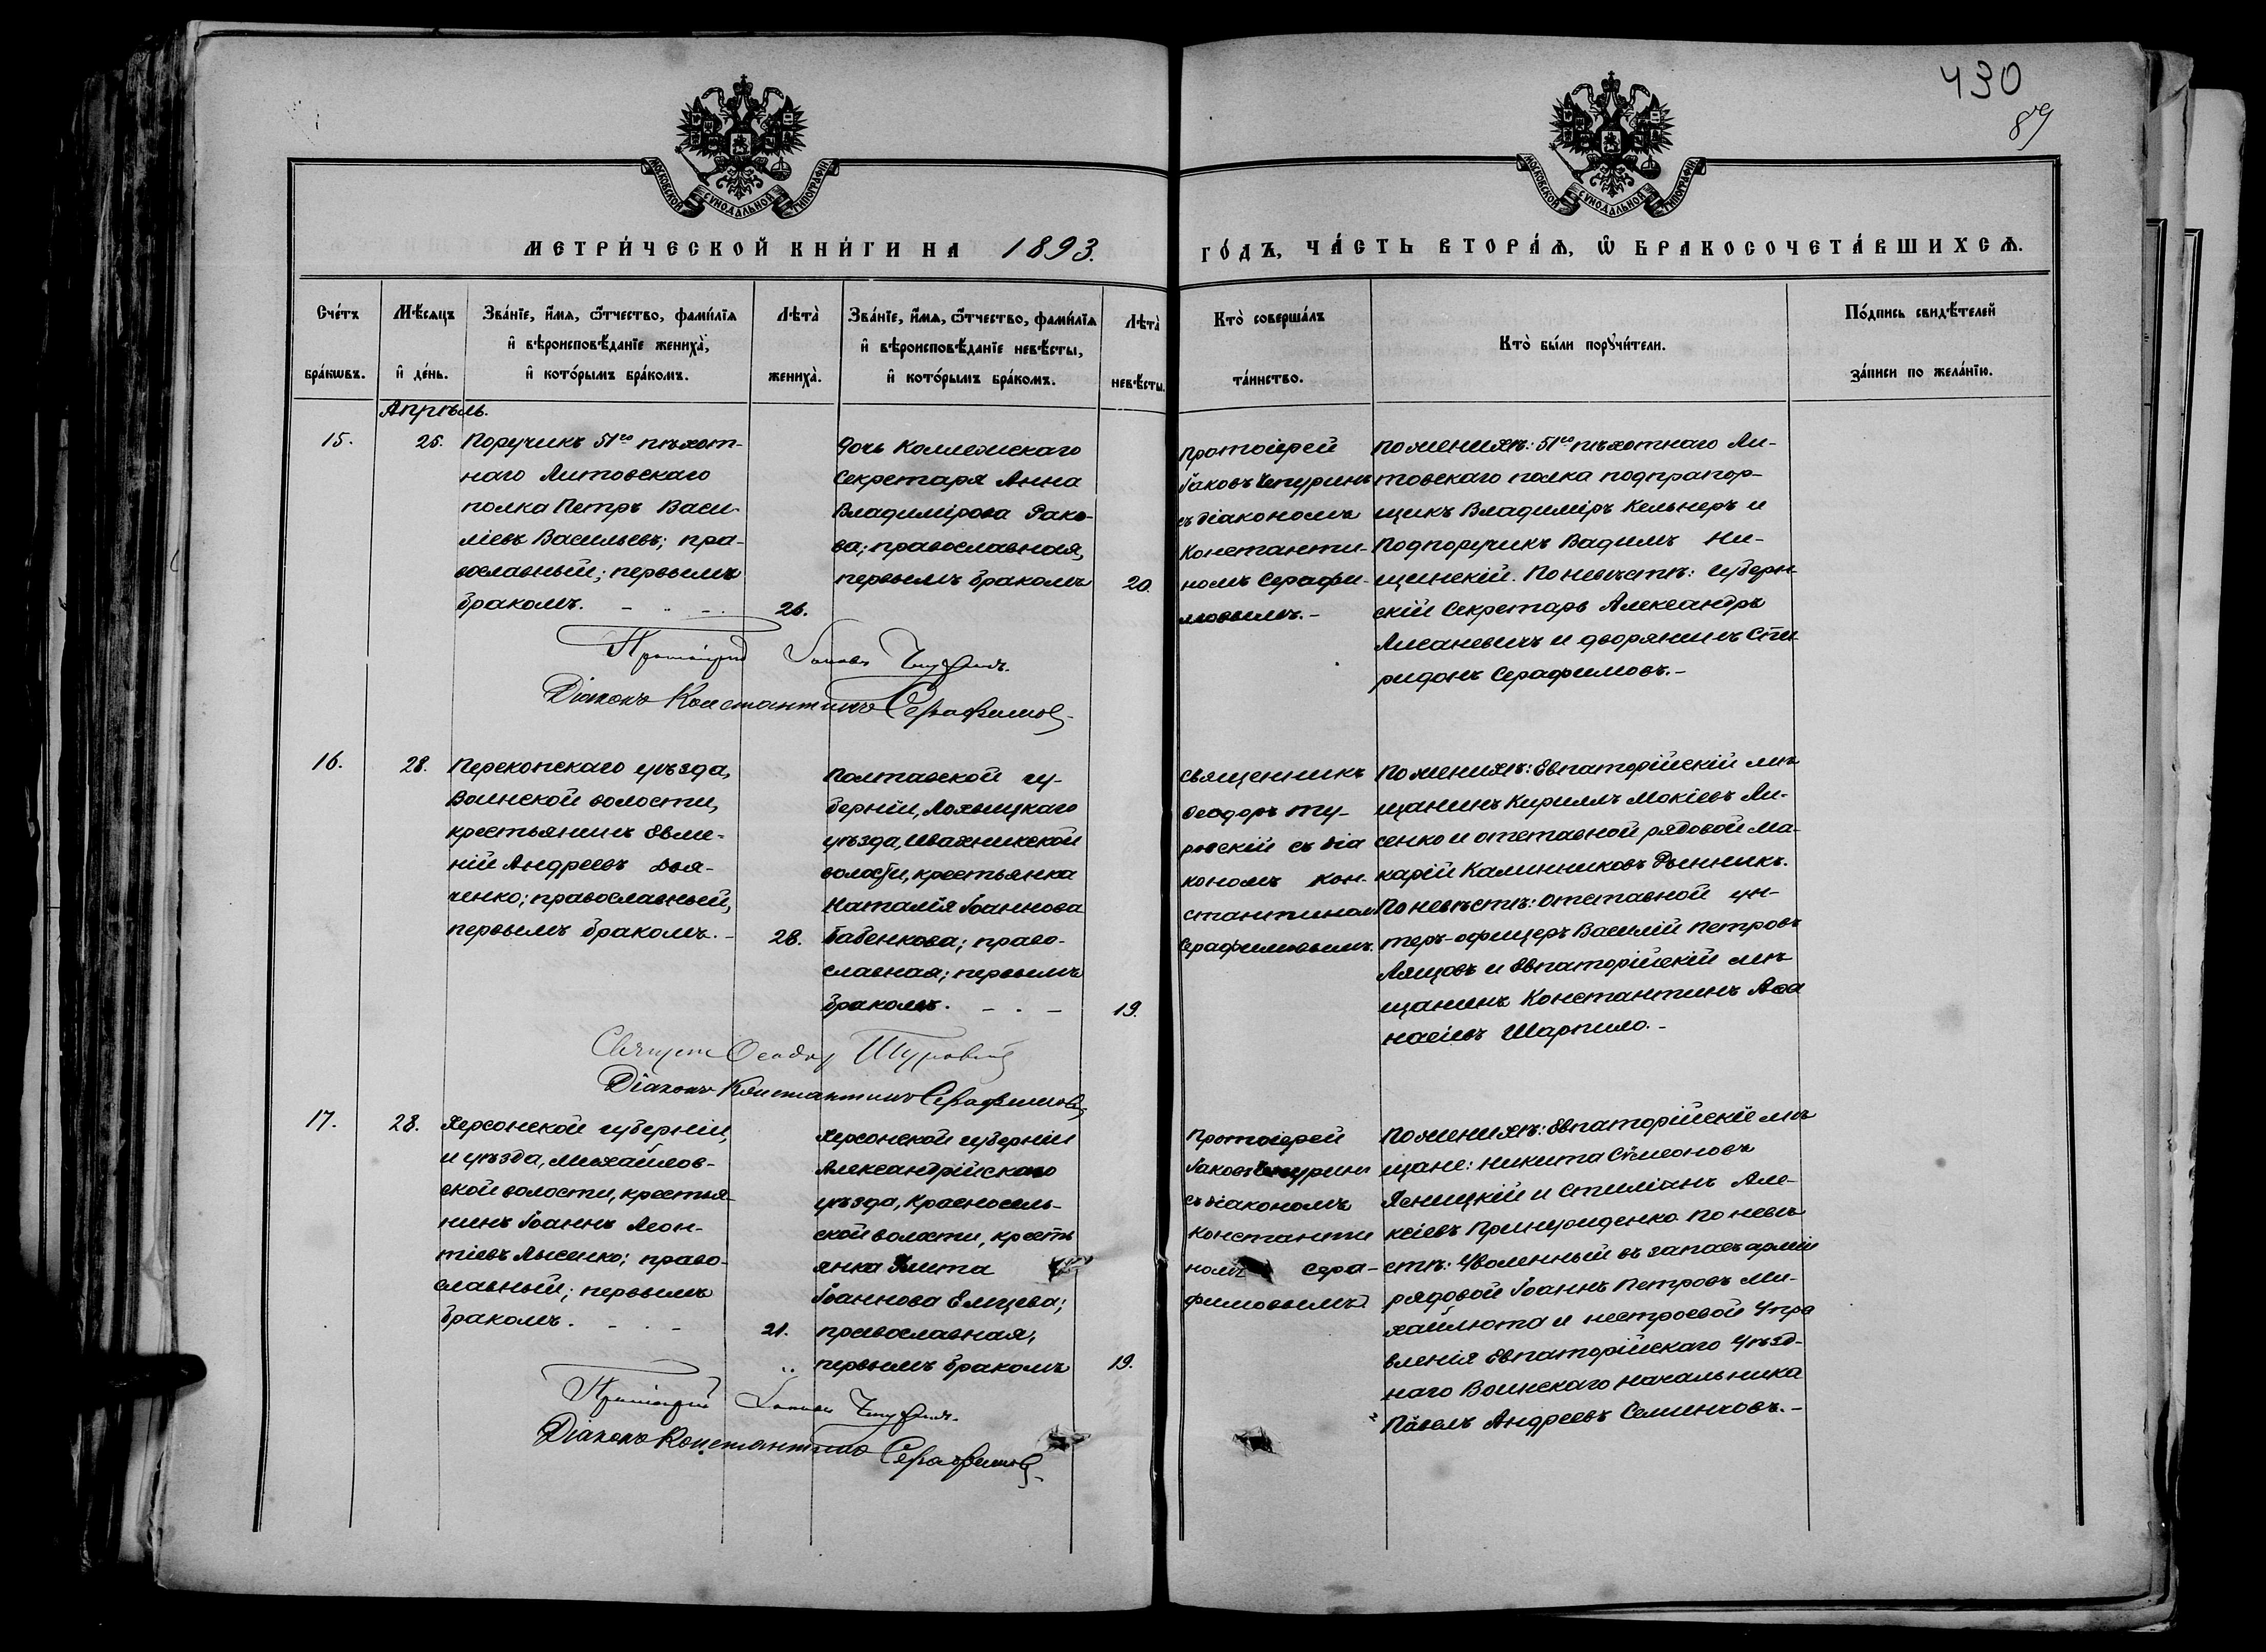 430
89
МОСКОВСКОЙ СѴНОДАЛЬНОЙ ТИПОГРАФІИ
МОСКОВСКОЙ СѴНОДАЛЬНОЙ ТИПОГРАФІИ
МЕТРИ́ЧЕСКОЙ КНИ́ГИ НА 1893.
ГО́ДЪ, ЧА́СТЬ ВТОРА́Ѧ, Ѽ БРАКОСОЧЕТА́ВШИХСѦ.
Сче́тъ
бра́кѡвъ.
Мѣ́сяцъ
и҆ де́нь.
Зва́нїе, и҆́мѧ, ѻ҆́тчество, фами́лїѧ
и҆ вѣроисповѣ́данїе жениха̀,
и҆ кото́рымъ бра́комъ.
Лѣта̀
жениха̀.
Зва́нїе, и҆́мѧ, ѻ҆́тчество, фами́лїѧ
и҆ вѣроисповѣ́данїе невѣ́сты,
и҆ кото́рымъ бра́комъ.
Лѣта̀
невѣ́сты.
Кто̀ соверша́лъ
та́инство.
Кто̀ бы́ли порꙋчи́тели.
По́дпись свидѣ́телей
за́писи по жела́нїю.
Апрѣль.
15.
25.
Поручикъ 51го пѣхот-
наго Литовскаго
полка Петръ Васи-
ліевъ Васильевъ; пра-
вославный; первымъ
бракомъ.
26.
Дочь Коллежскаго
Секретаря Анна
Владимірова Рако-
ва; православная,
первымъ бракомъ
20.
Протоіерей
Іаковъ Чепуринъ
съ діакономъ
Константи-
номъ Серафи-
мовымъ.-
По женихѣ: 51го пѣхотнаго Ли-
товскаго полка подпрапор-
щикъ Владиміръ Кельнеръ и
Подпоручикъ Вадимъ Ни-
щинскій. По невѣстѣ: Губерн-
скій Секретарь Александръ
Лисаневичъ и дворянинъ Спи-
ридонъ Серафимовъ.-
Протоіерей Іаковъ Чепуринъ.
Діаконъ Константинъ Серафимовъ
16.
28.
Перекопскаго уѣзда,
Воинской волости,
крестьянинъ Евме-
ній Андреевъ Дья-
ченко; православный,
первымъ бракомъ.-
28.
Полтавской гу-
берніи, Лохвицкаго
уѣзда, Ивахникской
волости, крестьянка
Наталія Іоаннова
Бабенкова; право-
славная; первымъ
бракомъ.
19.
Священникъ
Ѳеодоръ Ту-
ровскій съ діа
кономъ Кон-
стантиномъ
Серафимовымъ.
По женихѣ: Евпаторійскій мѣ
щанинъ Кириллъ Мокіевъ Ли-
сенко и отставной рядовой Ма-
карій Калинниковъ Рынникъ.
По невѣстѣ: отставной ун-
теръ-офицеръ Василій Петровъ
Лящовъ и Евпаторійскій мѣ
щанинъ Константинъ Аѳа
насіевъ Шарпило.-
Священ Ѳеодор Туровскій
Діаконъ Константинъ Серафимовъ
17.
28.
Херсонской губерніи,
и уѣзда, Михайлов-
ской волости, крестья-
нинъ Іоаннъ Леон-
тіевъ Лысенко; право-
славный; первымъ
бракомъ.
21.
Херсонской губерніи
Александрійскаго
уѣзда, Красносель-
ской волости, кресть
янка
Іоаннова Елцева;
православная,
первымъ бракомъ
19.
Протоіерей
Іаковъ Чепуринъ
съ діакономъ
Константи
номъ Сера-
фимовымъ
По женихѣ: Евпаторійскіе мѣ
щане: Никита Сѵмеоновъ
Ясницкій и Стиліанъ Але-
ксіевъ По невѣ
стѣ: Уволенный въ запасъ арміи
рядовой Іоаннъ Петровъ Ми-
хайлюта и нестроевой Упра
вленія Евпаторійскаго Уѣзд-
наго Воинскаго начальника
Павелъ Андреевъ Семинковъ.-
Протоіерей Іаковъ Чепуринъ.
Діаконъ Константинъ Серафимовъ